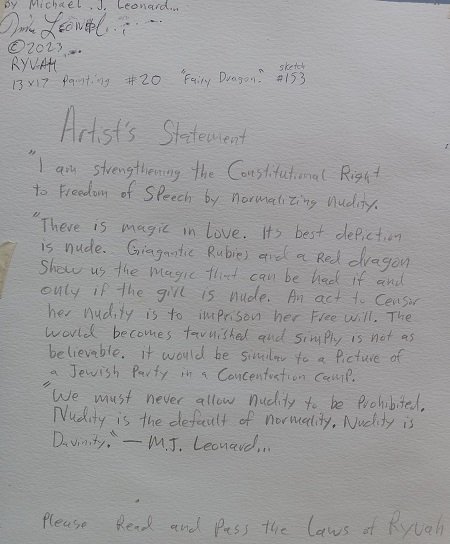 By Michael J. Leonard...
©2023
RYVAH
13x17 Painting #20 "Fairy Dragon." sketch #153
Artist's Statement
"I am strengthening the Constitutional Right
to Freedom of Speech by normalizing nudity.
"There is magic in love. Its best depiction
is nude. Giagantic Rubies and a Red dragon
Show us the magic that can be had if and
only if the girl is nude. An act to Censor
her nudity is to imprison her Free will. The
world becomes tarnished and simply is not as
believable. it would be similar to a Picture of
a Jewish Party in a Concentration camp.
"We must never allow Nudity to be Prohibited.
Nudity is the default of normality. Nudity is
Davinity." — M.J. Leonard...
Please Read and Pass the Laws of Ryvah